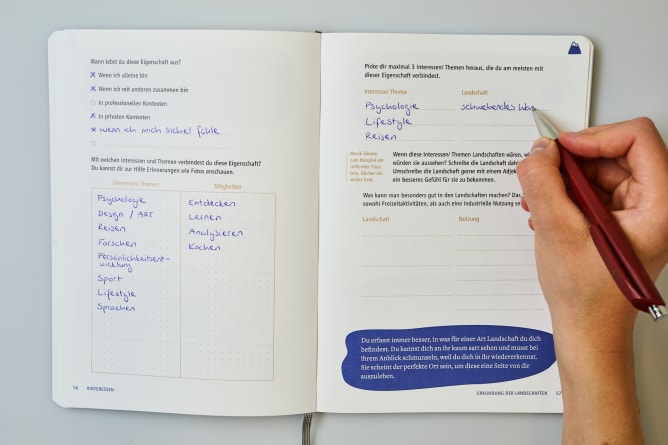 Wann lebst du diese Eigenschaft aus?
Wenn ich alleine bin
Wenn ich mit anderen zusammen bin
In professionellen Kontexten
In privaten Kontexten
wenn ich mich sicher fühle
Mit welchen Interessen und Themen verbindest du diese Eigenschaft?
Du kannst dir zur Hilfe Erinnerungen wie Fotos anschauen.
Interessen/ Themen Tätigkeiten
Psychologie
Design / ART
Reisen
Forschen
Persönlichkeitsent-
wicklung
Sport
Lifestyle
Sprachen
Entdecken
Lernen
Analysieren
Kochen
56 HINTERESSEN
Picke dir maximal 3 Interessen/ Themen heraus, die du am meisten mit
dieser Eigenschaft verbindest.
Interesse/ Thema Landschaft
Psychologie schwebendes
Lifestyle
Reisen
Musik könnte
zum Beispiel ein
Fluss
sein, Bücher ein
Feld.
Wenn diese Interessen/ Themen Landschaften wären, wie
würden sie aussehen? Schreibe die Landschaft
Umschreibe die Landschaft gerne mit einem
ein besseres Gefühl für sie zu bekommen.
Was kann man besonders gut in den Landschaften machen?
sowohl Freizeitaktivitäten, als auch eine industrielle Nutzung
Landschaft Nutzung
Du erfasst immer besser, in was für einer Art Landschaft du dich
befindest. Du kannst dich an ihr kaum satt sehen und musst bei
ihrem Anblick schmunzeln, weil du dich in ihr wiedererkennst.
Sie scheint der perfekte Ort sein, um diese eine Seite von dir
auszuleben.
ERKUNDUNG DER LANDSCHAFTEN 57